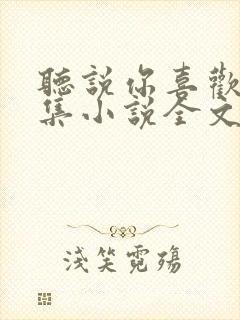 聽說你喜歡
集小說全文
淺笑霓殤